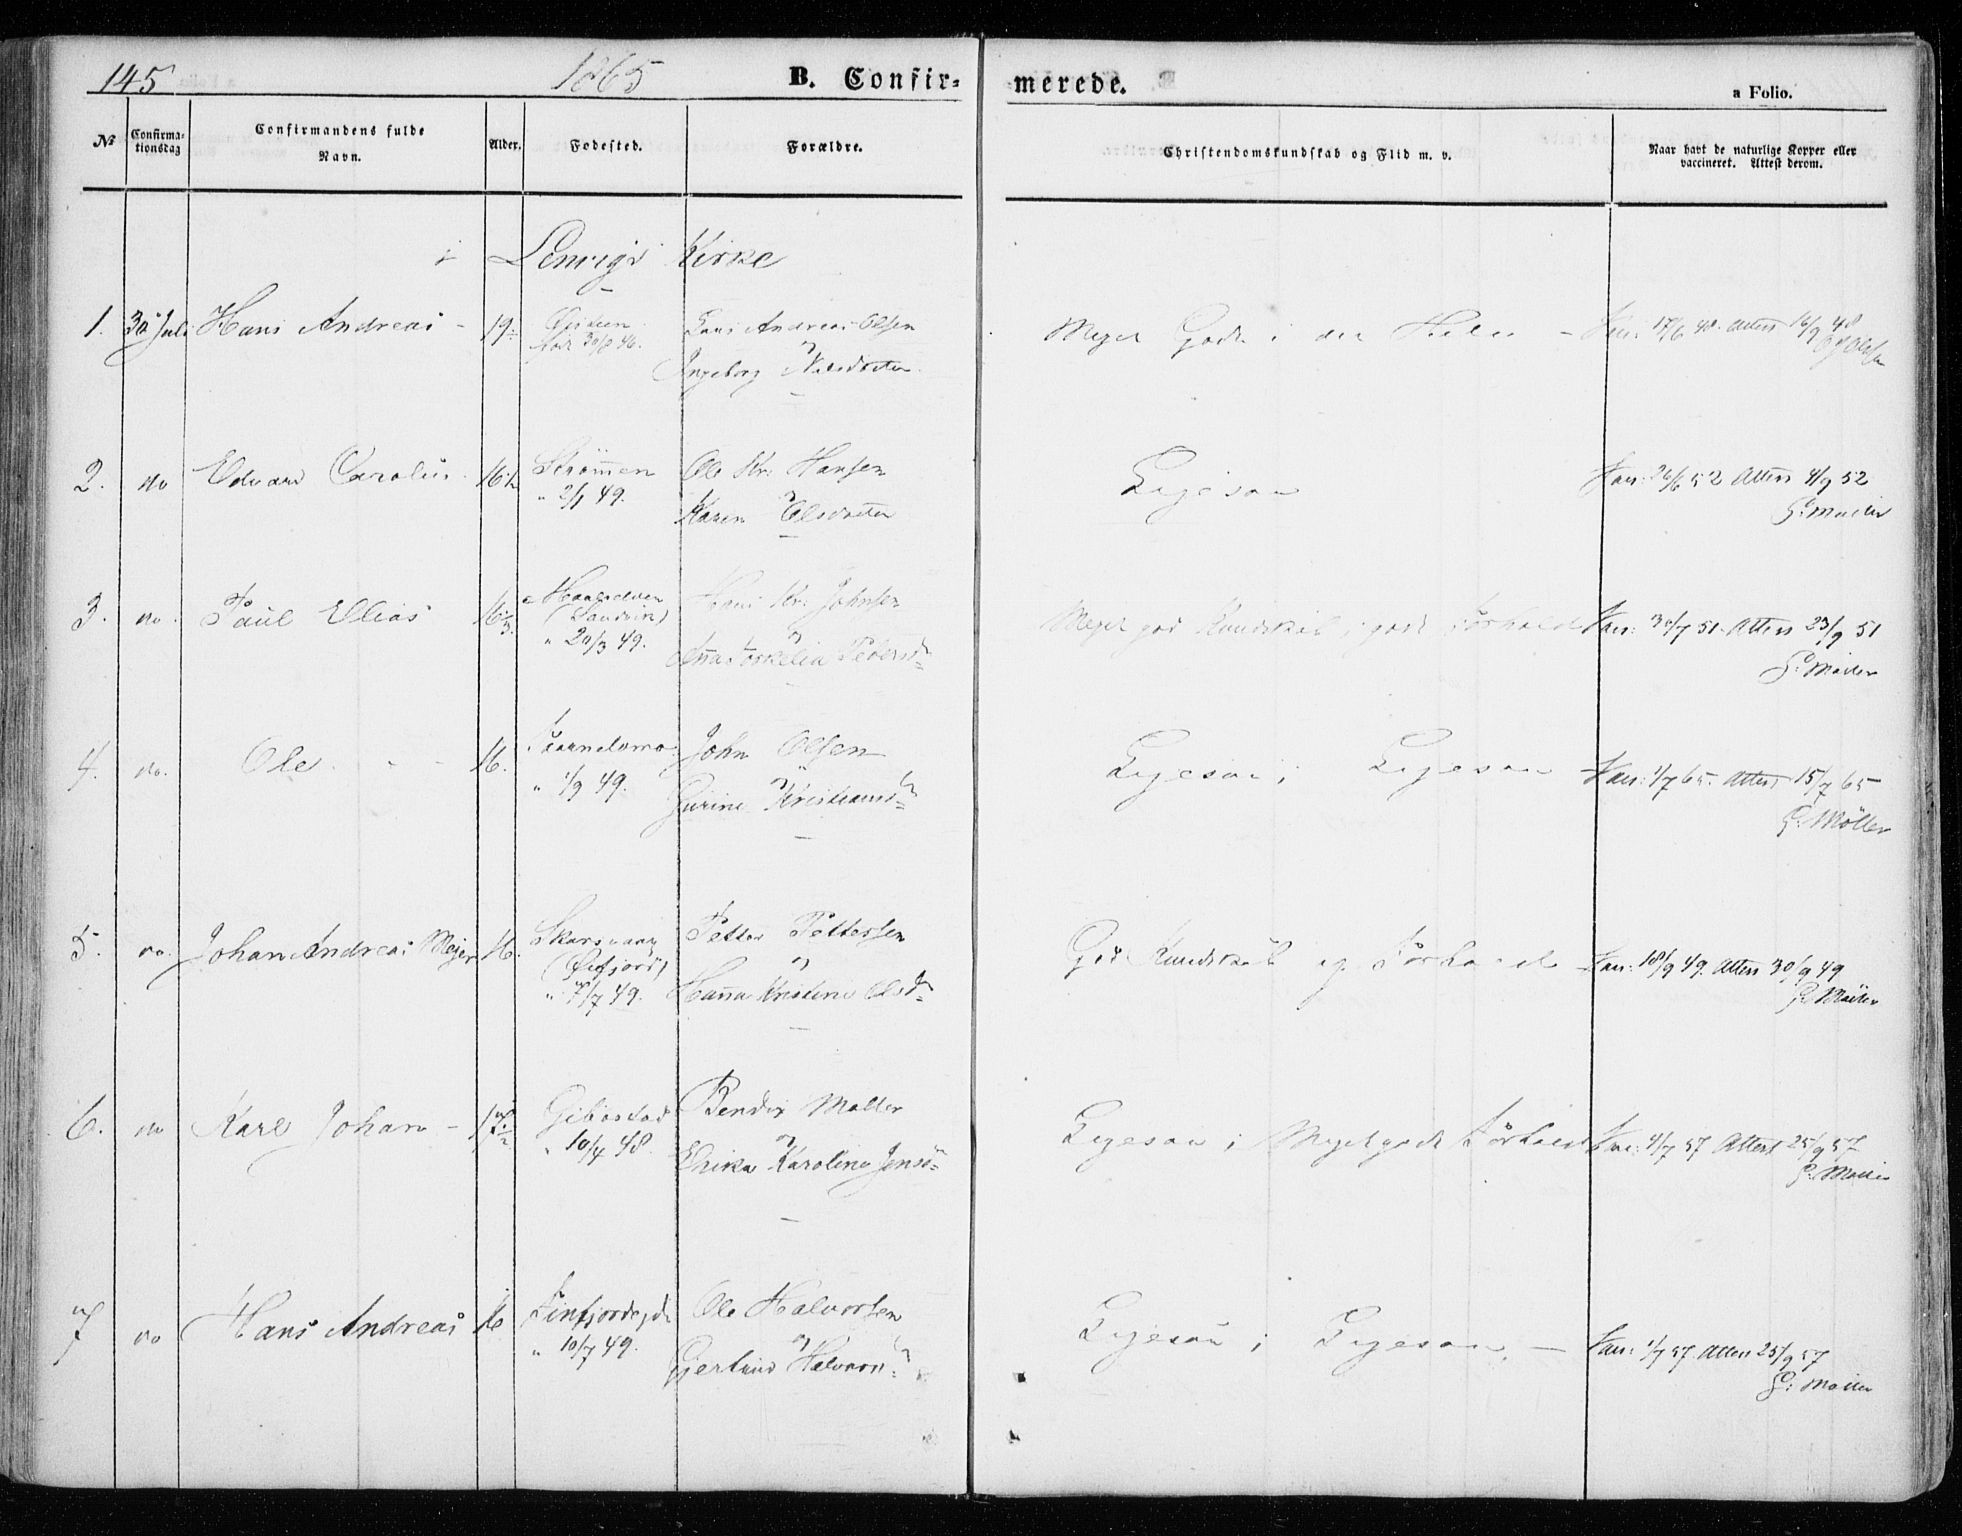 145 1865 B. Confir- merede. a Folio.
No Confirmationsdag Confirmandens fulde Navn. Alder. Fødested. Forældre. Christendomskundskab og Flid m. v. Naar havt de naturlige Kopper eller vaccineret. Attest derom.
i Lenvigs Kirke
1. 30 Juli Hans Andreas - 19 Hans Andreas Olsen Meget Godt i det Hele - Vac: 17/6 48. Attest 16/9 48
født 30/8 46. Ingeborg Nilsdatter
2. do Edvard Carolus 16 1/2 Strømmen Ole Kr. Hansen Ligesaa Vac: 26/6 52 Attest 4/9 52
" 2/1 49. Karen Olsdatter G: Møller
3. do. Paul Elias 16 1/3. Maalselven Hans Kr. Johnsen Meget god Kundskab i godt Forhold Vac: 30/7 51. Attest 23/9 51
(Sandvik)
" 20/3 49. Anna Torkelia Peders G: Møller
4. do. Ole - - 16. John Olsen Ligesaa i Ligesaa Vac: 1/7 65. Attest 15/7 65
" 1/9 49. Gurine Kristians G: Møller
5. do. Johan Andreas Mejer 16. Skarsvaag Petter Pettersen God Kundskab og Forhold Vac: 18/9 49. Attest 30/9 49
(Øifjord)
" 7/7 49. Hanna Kristine Olsd G: Møller
6. do Karl Johan - 17 1/2 Gibostad Bendix Møller Ligesaa i Meget godt Forhold Vac: 4/7 57 Attest 25/9 57
" 10/4 48. Erika Karoline Jens G: Møller
7 do Hans Andreas 16 Ole Halvorsen Ligesaa i Ligesaa. - Vac: 1/7 57. Attest 25/9 57
" 10/7 49. Gjertrud Halvors G: Møller